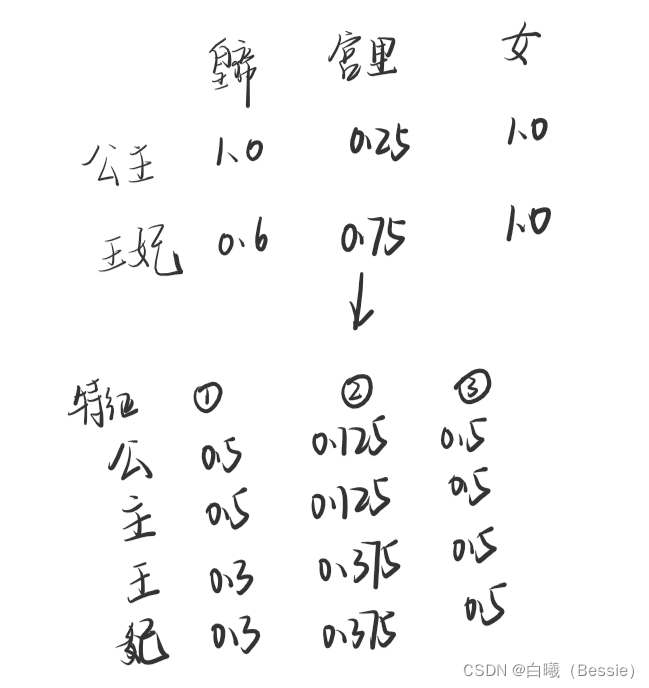 皇帝 宫里 女
公主 1.0 0.25 1.0
王妃 0.6 0.75 1.0
↓
特征 ① ② ③
公 0.5 0.125 0.5
主 0.5 0.125 0.5
王 0.3 0.375 0.5
妃 0.3 0.375 0.5
CSDN @白曦（Bessie）